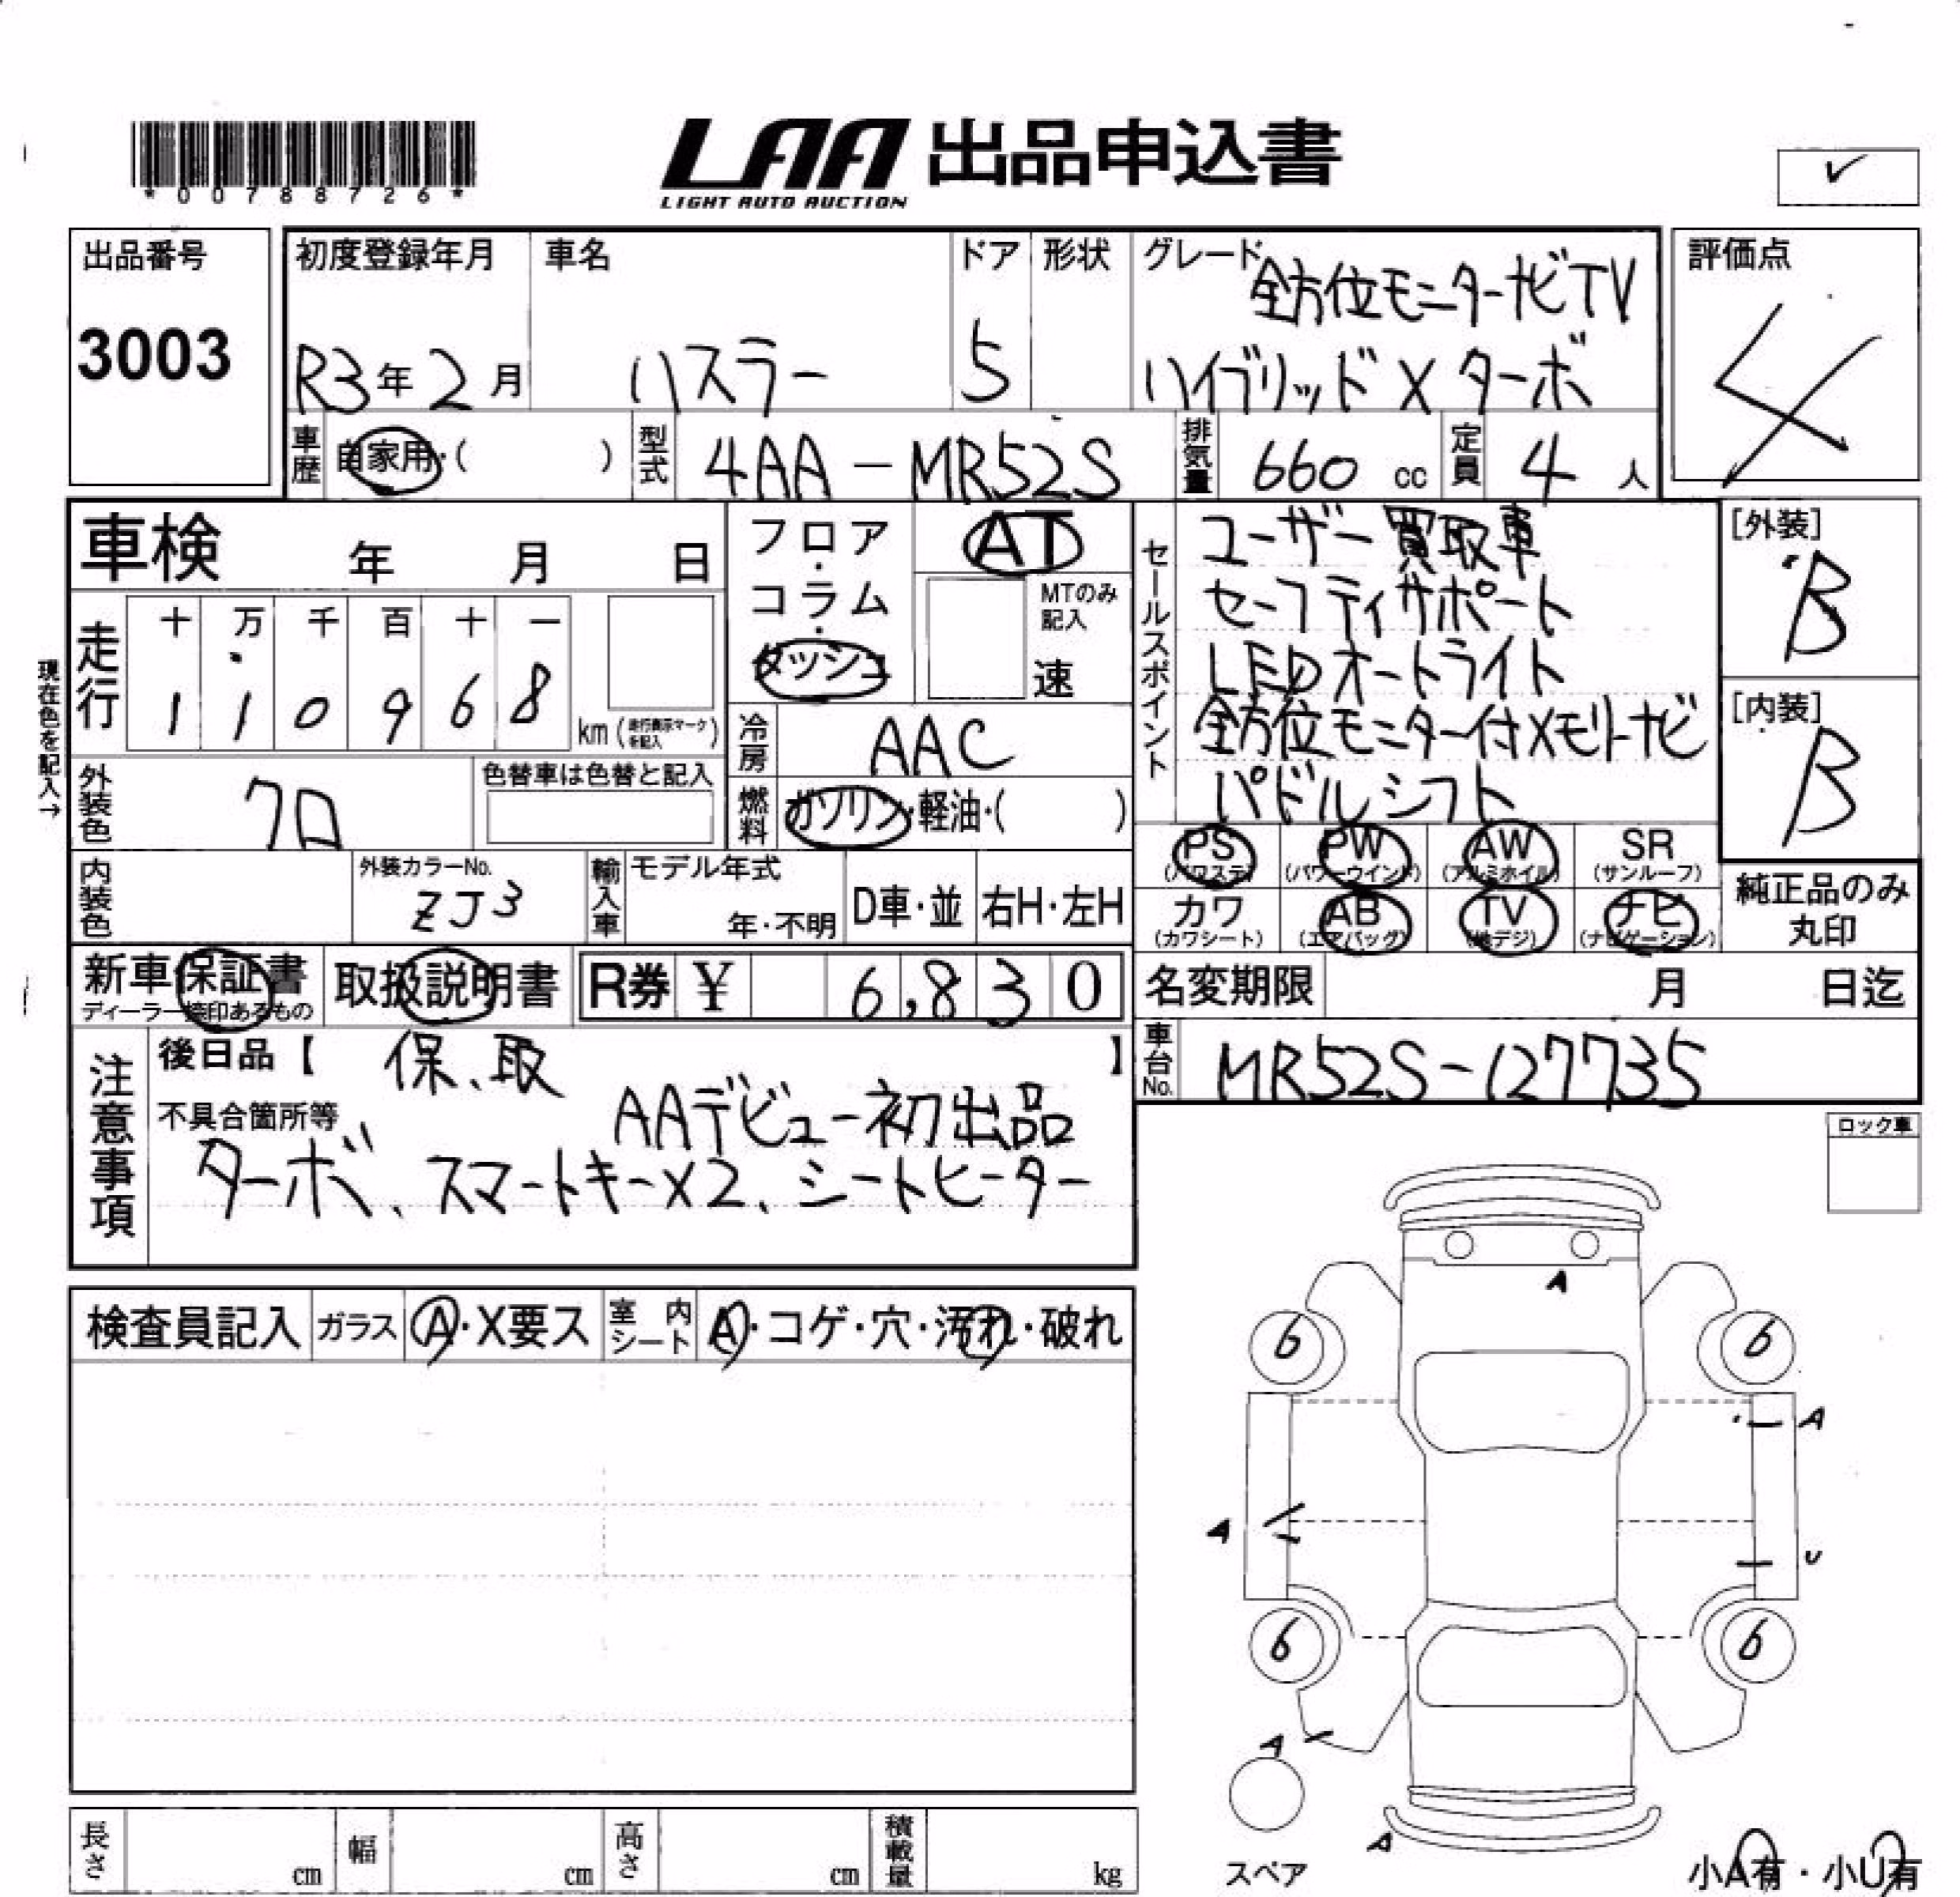 *00788726*
LAA 出品申込書
LIGHT AUTO AUCTION
✓
出品番号
3003
初度登録年月
R3年2月
車名
ハスラー
ドア
5
形状
グレード
全方位モニターナビTV
ハイブリッド X ターボ
評価点
4
車歴 自家用・( )
型式 4AA-MR52S
排気量 660 cc
定員 4 人
車検 年 月 日
フロア・コラム・ダッシュ
AT
MTのみ記入
速
走行
十 万 千 百 十 一
1 1 0 9 6 8
km (走行表示マークを記入)
現在色を記入→
冷房 AAC
外装色 クロ
色替車は色替と記入
燃料 ガソリン・軽油・( )
セールスポイント
ユーザー買取車
セーフティサポート
LEDオートライト
全方位モニター付メモリーナビ
パドルシフト
[外装]
B
[内装]
B
PS (パワステ)
PW (パワーウインド)
AW (アルミホイル)
SR (サンルーフ)
カワ (カワシート)
AB (エアバッグ)
TV (地デジ)
ナビ (ナビゲーション)
純正品のみ丸印
内装色
外装カラーNo.
ZJ3
輸入車
モデル年式
年・不明
D車・並
右H・左H
新車保証書
ディーラー捺印あるもの
取扱説明書
R券 ¥ 6,830
名変期限 月 日迄
車台No. MR52S-127735
注意事項
後日品【 保、取 】
不具合箇所等
AAデビュー初出品
ターボ、スマートキーX2、シートヒーター
ロック車
検査員記入
ガラス A・X要ス
室内シート A・コゲ・穴・汚れ・破れ
A
6 6
A
A
U
6 6
A
A
スペア
小A有・小U有
長さ cm
幅 cm
高さ cm
積載量 kg